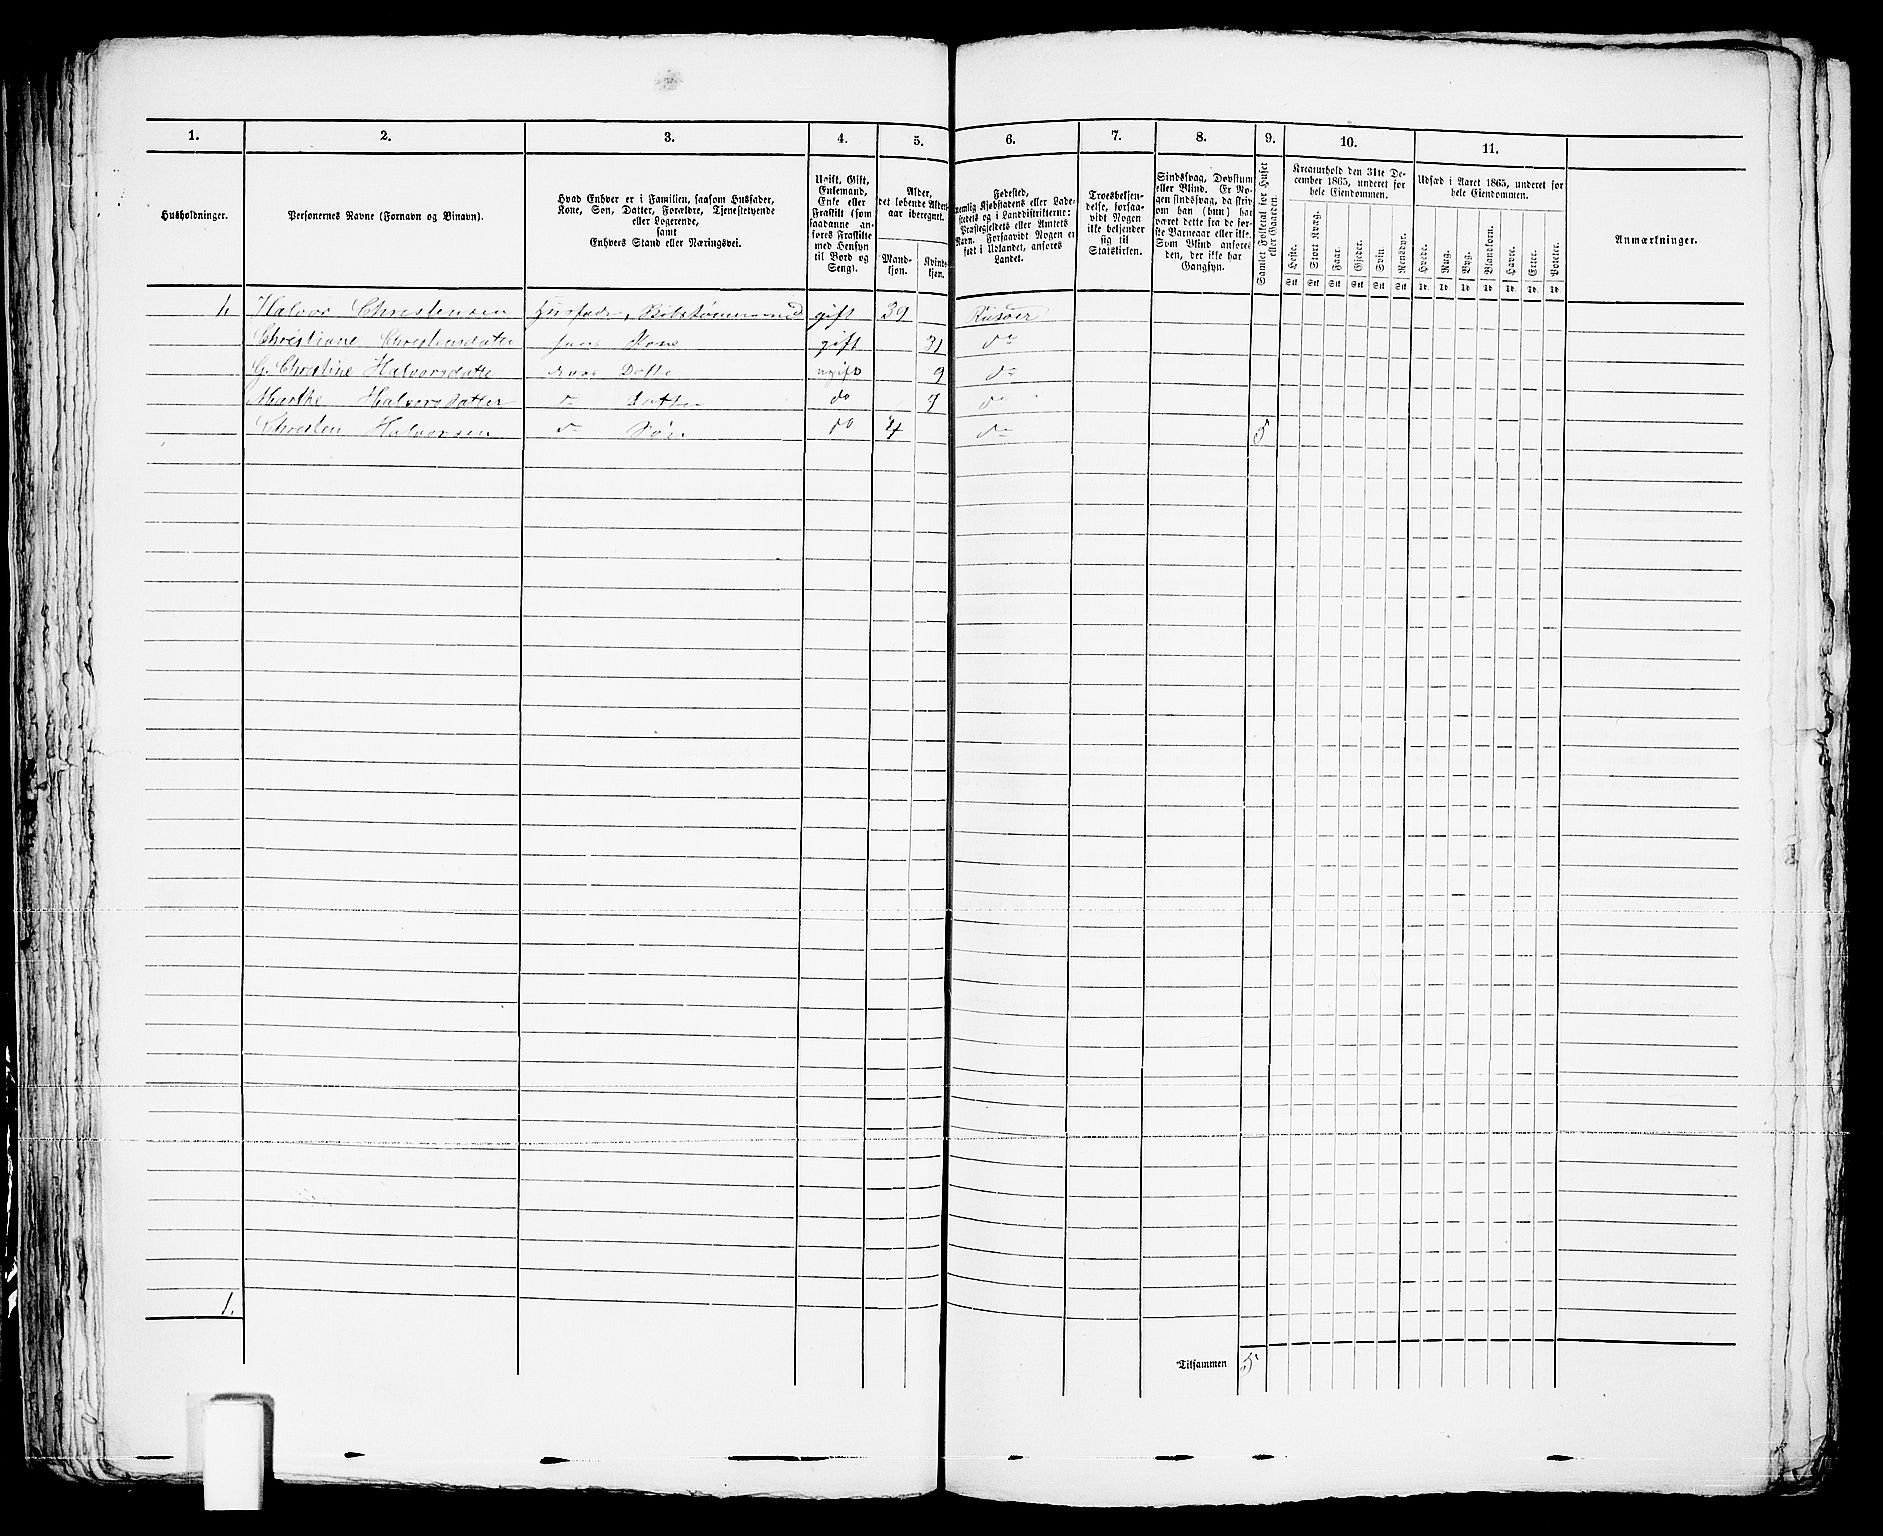 1. 2. 3. 4. 5. 6. 7. 8. 9. 10. 11.
Husholdninger.
Personernes Navne (Fornavn og Binavn).
Hvad Enhver er i Familien, saasom Husfader,
Kone, Søn, Datter, Forældre, Tjenestetyende
eller Logerende,
samt
Enhvers Stand eller Næringsvei.
Ugift, Gift,
Enkemand,
Enke eller
Fraskilt (som
saadanne an-
føres Fraskilte
med Hensyn
til Bord og
Seng).
Alder,
det løbende Alders-
aar iberegnet.
Mand-
kjøn.
Kvinde-
kjøn.
Fødested,
nemlig Kjøbstadens eller Lade-
stedets og i Landdistrikterne:
Præstegjeldets eller Amtets
Navn. Forsaavidt Nogen er
født i Udlandet, anføres
Landet.
Troesbekjen-
delse, forsaa-
vidt Nogen
ikke bekjender
sig til
Statskirken.
Sindssvag, Døvstum
eller Blind. Er No-
gen sindssvag, da skriv
om han (hun) har
været dette fra de før-
ste Barneaar eller ikke.
Som Blind anføres
den, der ikke har
Gangsyn.
Samlet Folketal for Huset
eller Gaarden.
Kreaturhold den 31te De-
cember 1865, anført for
hele Eiendommen.
Heste. Stort Kvæg. Faar. Gjeder. Svin. Rensdyr.
Stk Stk Stk Stk Stk Stk
Udsæd i Aaret 1865, anført for
hele Eiendommen.
Hvede. Rug. Byg. Blandkorn. Havre. Erter. Poteter.
Td. Td. Td. Td. Td. Td. Td.
Anmærkninger.
1. Halvor Christensen gift 39 Risøer
Christiane Christensdatter hans Kone gift 31 do
G. Christine Halvorsdatte Datte ugift 9 do
Marthe Halvorsdatter do Datter do 7 do
Christen Halvorsen do Søn do 4 do 5
1.
Tilsammen 5